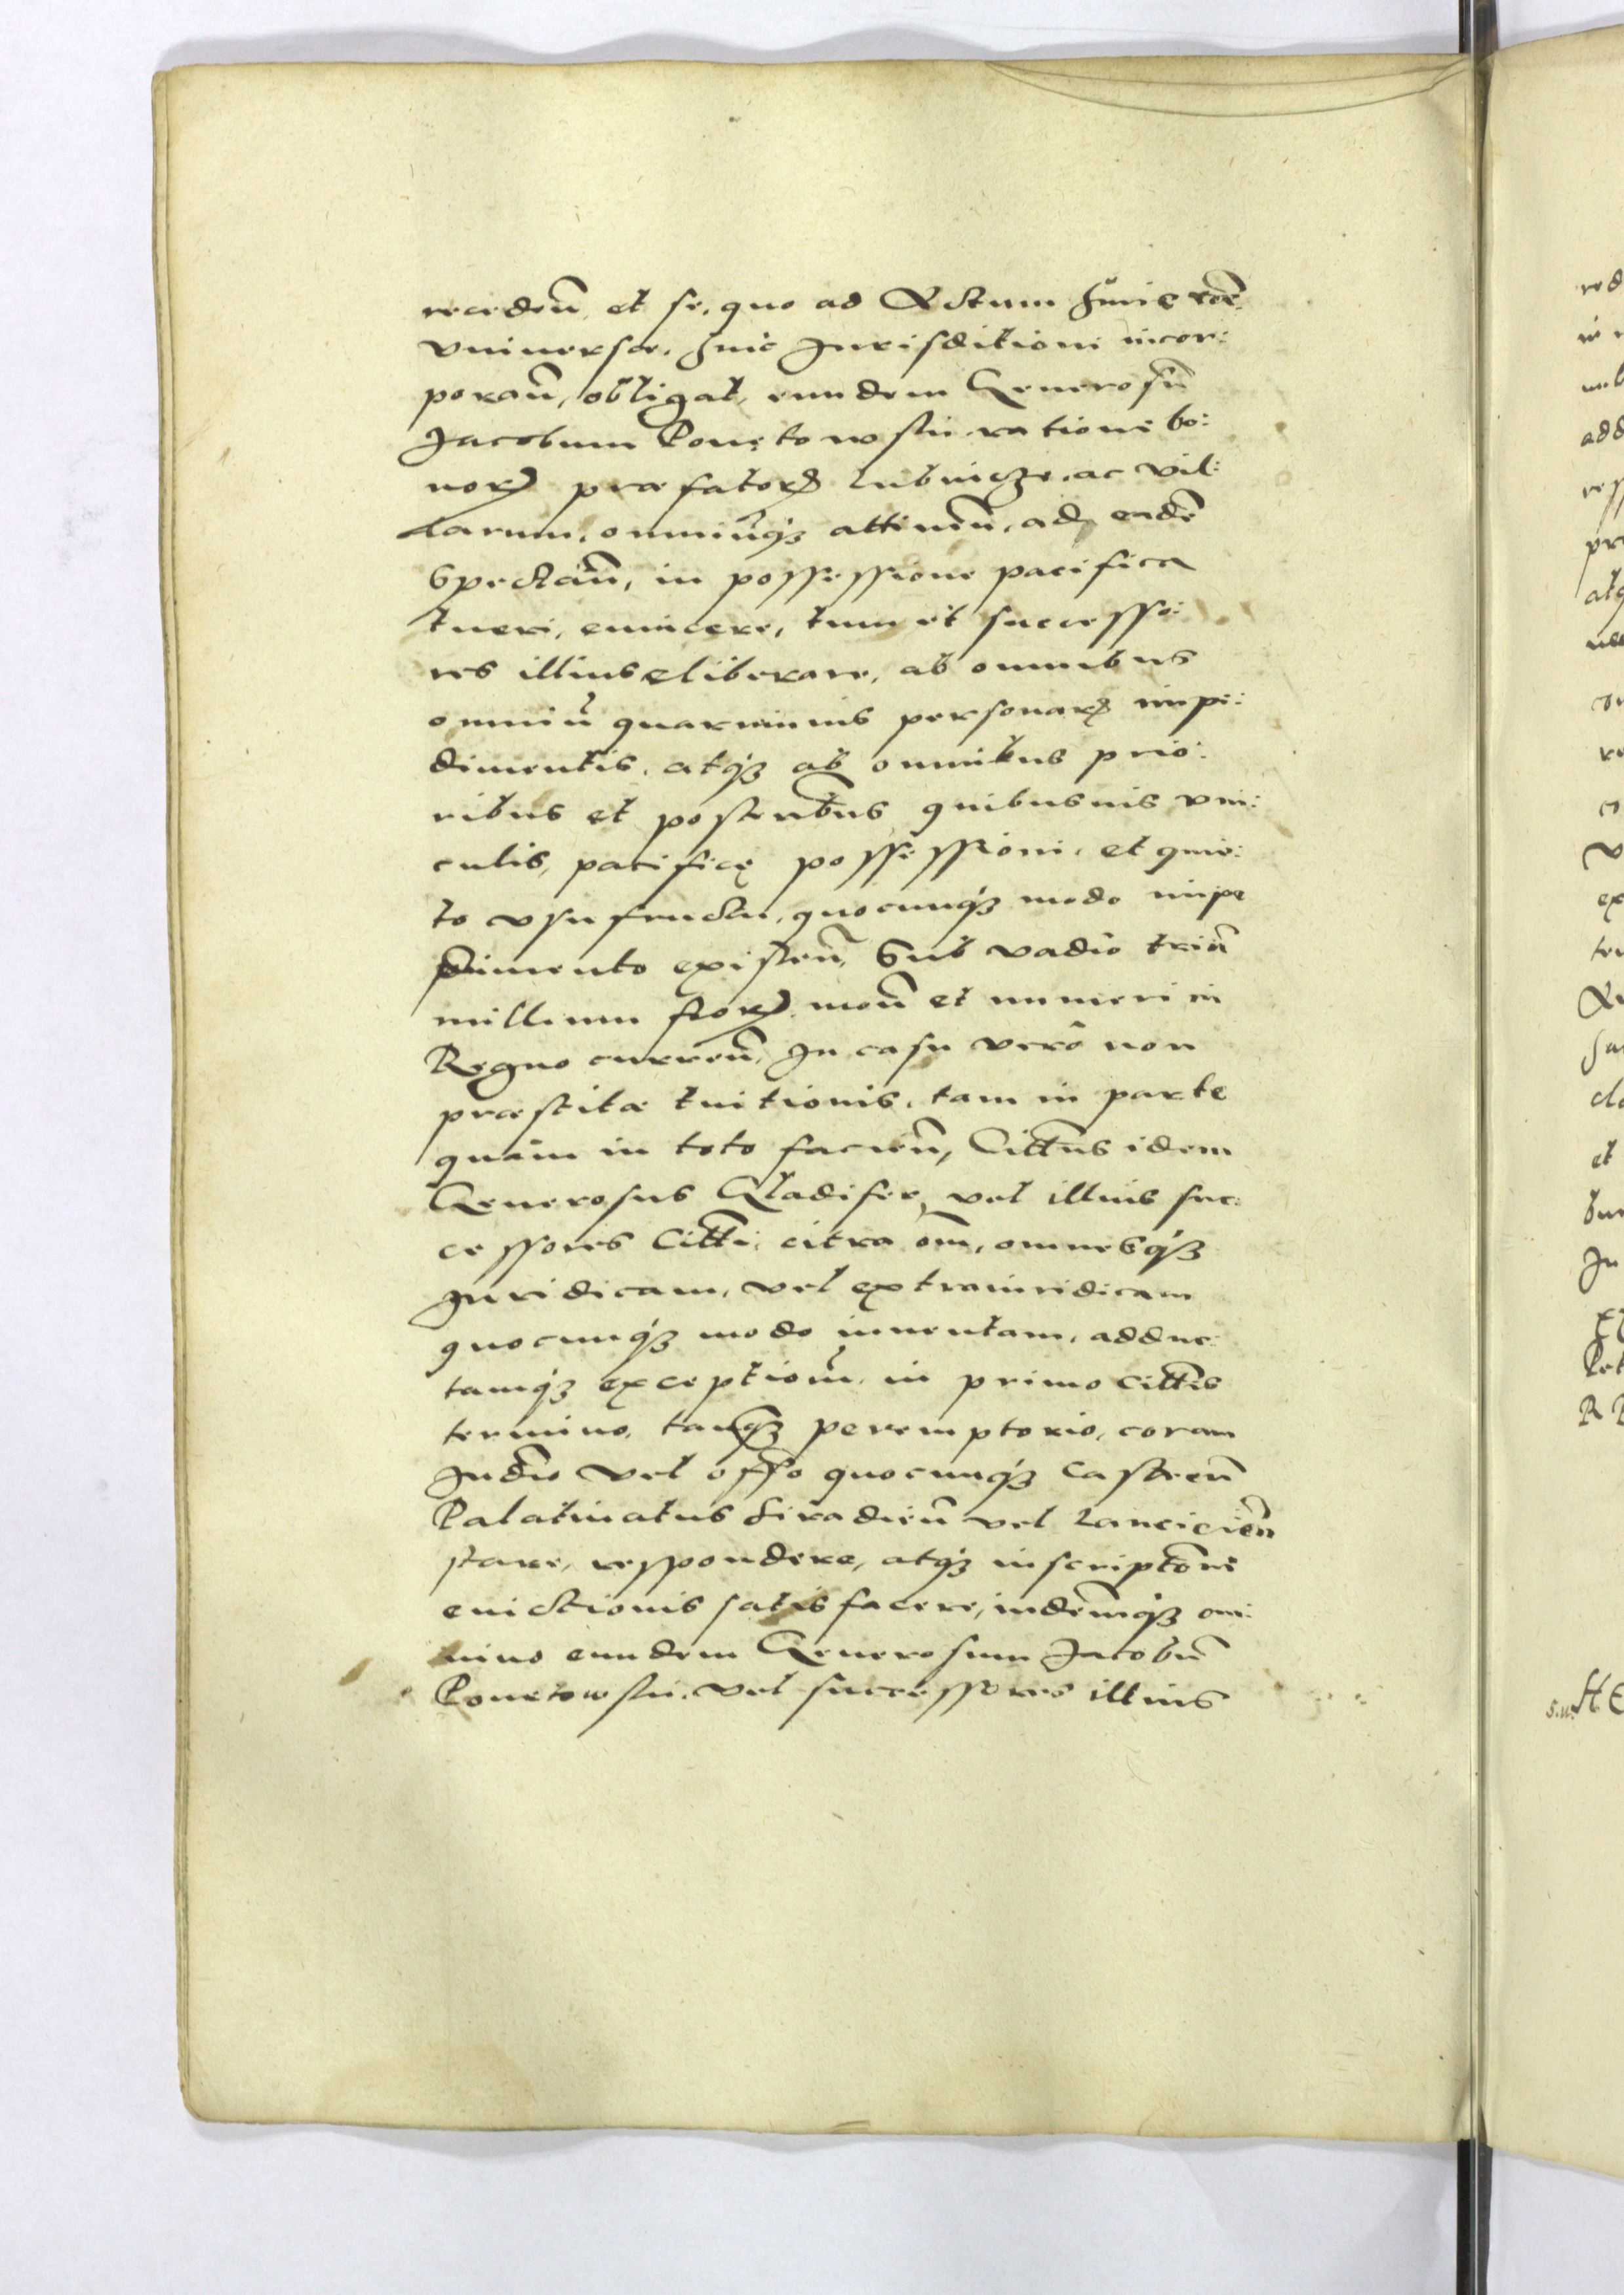 recedeñ, et se, quo ad Actum huic rōē
vniuersæ, huic Jurisditioni incor:
porañ, obligat, eundem Generosū
Jacobum Ponętowski ratione bo:
norꝝ præfatorꝝ Lubnicze, ac vil:
larum, omniūqꝫ attineñ, ad eadē
Spectañ, in possessione pacifica
tueri, euincere, tum et successo:
res illius eliberare, ab omnibus
omniū quarumuis personarꝝ impe:
dimentis, atqꝫ ab omnibus prio:
ribus et posteribus quibusuis vin:
culis, pacificę possessioni, et quie:
to vsufructu, quocunqꝫ modo impe
dimento existeñ, Sub vadio triū
millium florꝝ moñ et numeri in
Regno curreñ, In casu verò non
præstitæ tuitionis, tam in parte
quàm in toto facieñ, Citt̃us idem
Generosus Gladifer, vel illius suc:
cessores Citt̃i, citra om̃, omnesqꝫ
Juridicam, vel extraiuridicam
quocunqꝫ modo inuentam, adduc:
tamqꝫ exceptioñ, in primo citt̃is
termino, tanqꝫ peremptorio, coram
Judio vel offo quocunqꝫ Castreñ
Palatinatus Siradieñ vel Lancicieñ
stare, respondere, atqꝫ inscriptōni
euictionis satisfacere, indēmqꝫ om:
nino eundem Generosum Jacobū
Ponetowski, vel successores illius